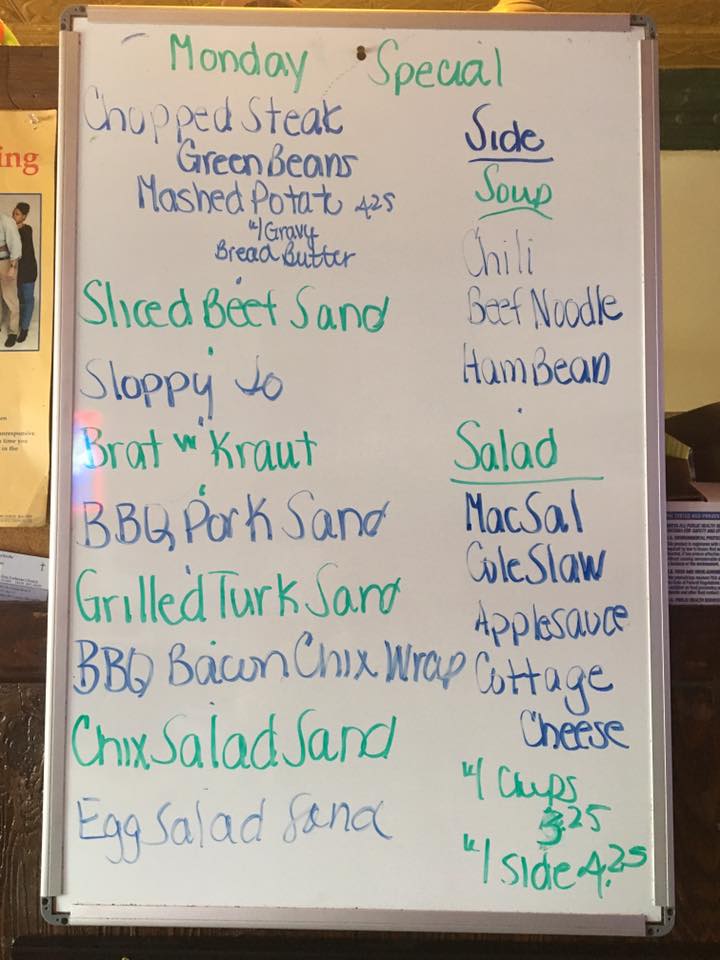 Monday Special
Chopped Steak
Green Beans
Mashed Potat 4.25
w/ Gravy
Bread Butter
Sliced Beef Sand
Sloppy Jo
Brat w Kraut
BBQ Pork Sand
Grilled Turk Sand
BBQ Bacon Chix Wrap
Chix Salad Sand
Egg Salad Sand
Side
Soup
Chili
Beef Noodle
Ham Bean
Salad
Mac Sal
Cole Slaw
Applesauce
Cottage
Cheese
w/ Chips
3.25
w/ side 4.25
ing